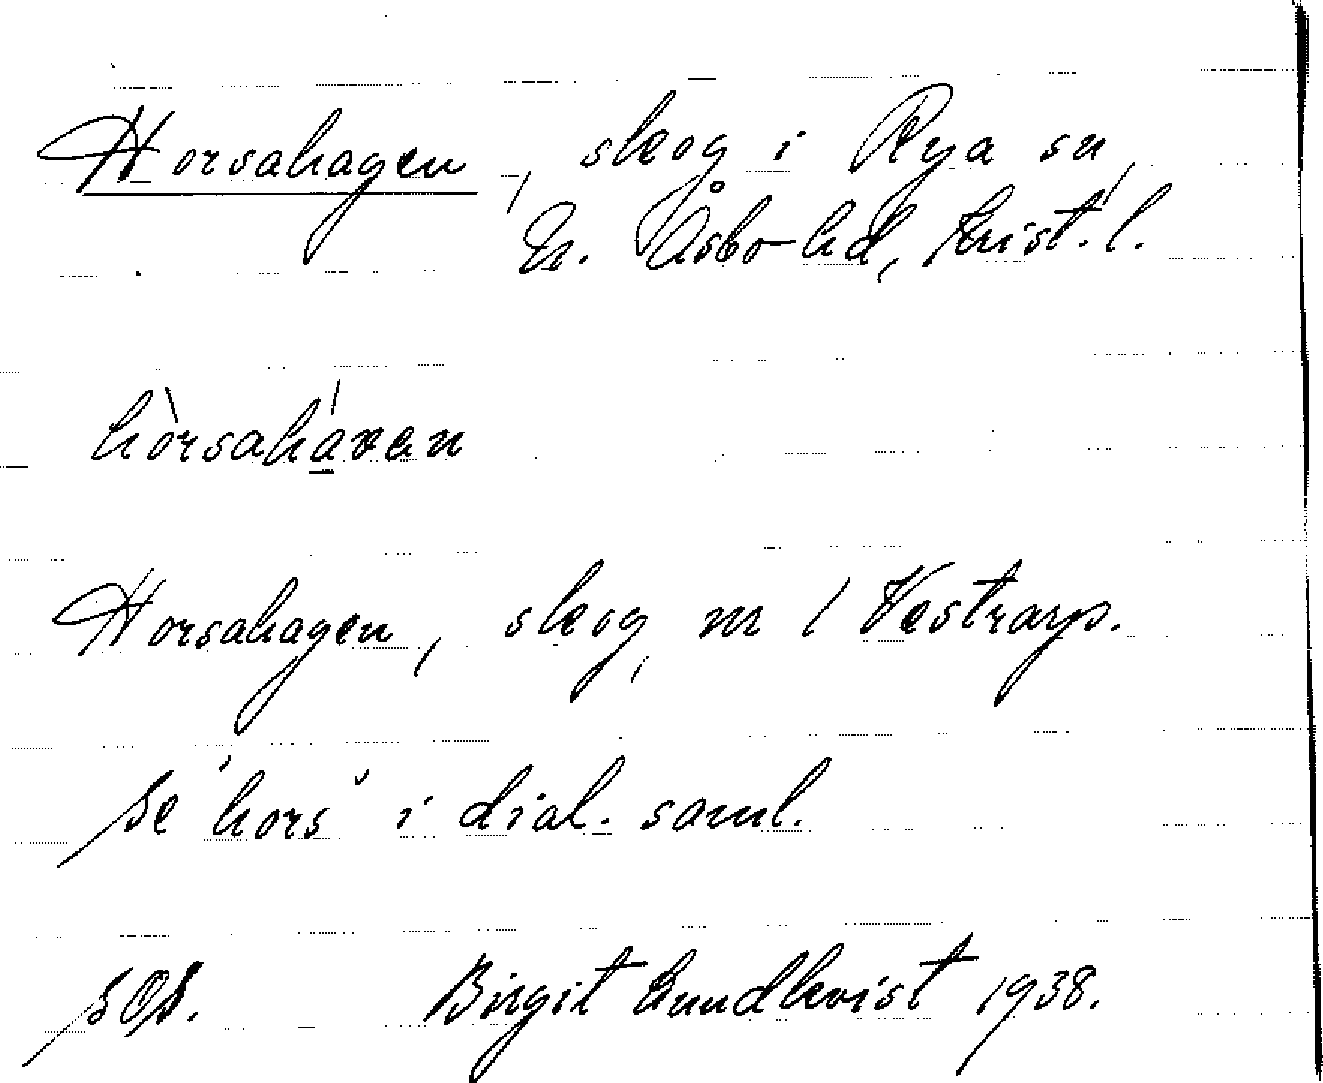 Horsahagen, skog i Rya sn,
N. Åsbo hd, Krist. l.
hòrsahávan
Horsahagen, skog, m / Västrarp.
se "hors" i dial. saml.
sOs. Birgit Lundkvist 1938.